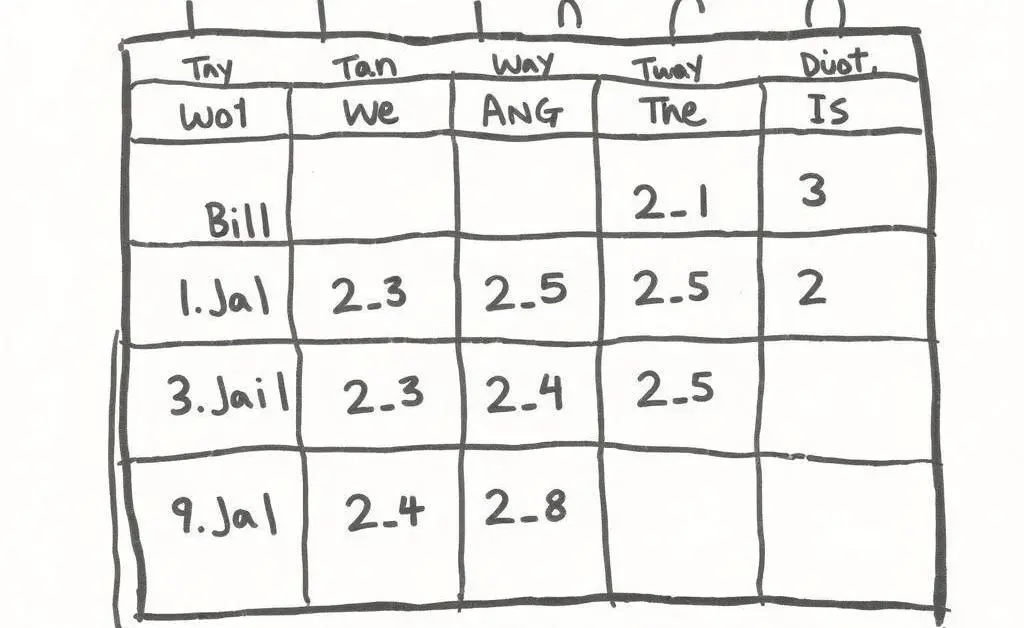 Tny Tan Way Tway Duot.
Wot We ANG The Is
Bill 2-1 3
1.Jal 2-3 2-5 2-5 2
3.Jail 2-3 2-4 2-5
9.Jal 2-4 2-8